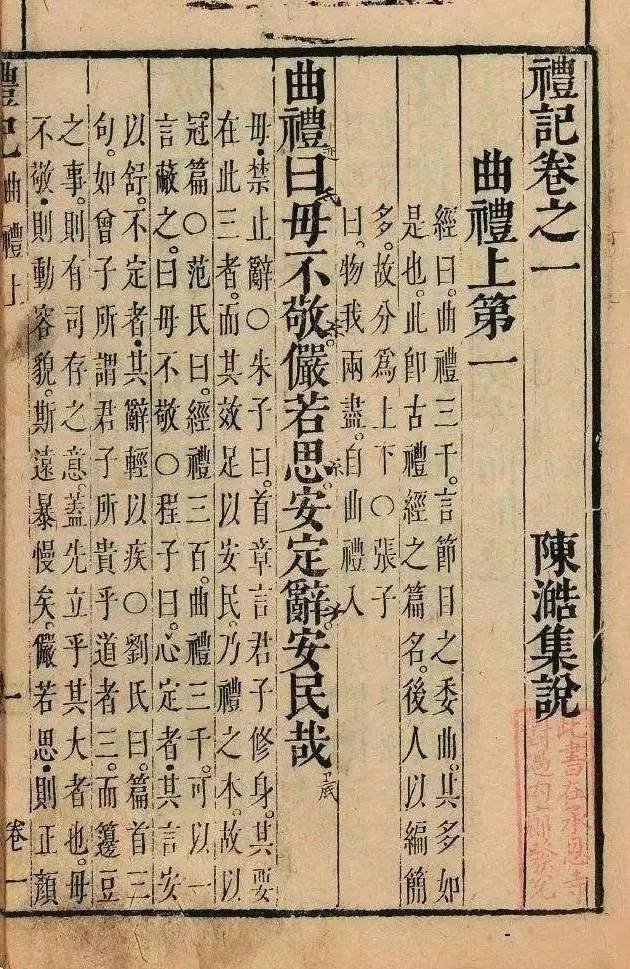 禮記卷之一 陳澔集說
曲禮上第一
經曰。曲禮三千。言節目之委曲。其多如
是也。此卽古禮經之篇名。後人以編簡
多。故分爲上下○張子
曰。物我兩盡。自曲禮入
曲禮曰毋不敬儼若思安定辭安民哉
毋。禁止辭○朱子曰。首章言君子修身。其要
在此三者。而其效足以安民。乃禮之本。故以
冠篇○范氏曰。經禮三百。曲禮三千。可以一
言蔽之。曰毋不敬○程子曰。心定者。其言安
以舒。不定者。其辭輕以疾○劉氏曰。篇首三
句。如曾子所謂君子所貴乎道者三。而籩豆
之事。則有司存之意。蓋先立乎其大者也。毋
不敬。則動容貌。斯遠暴慢矣。儼若思。則正顏
禮記曲禮上 一 卷一
此書在承恩寺